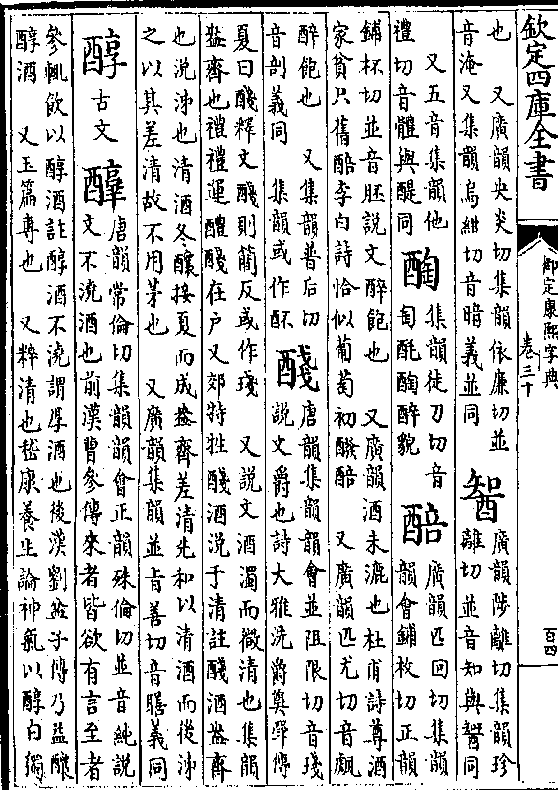 欽定四庫全書
御定康熙字典
卷三十
百四
也 又廣韻央炎切集韻依廉切並
音淹又集韻烏紺切音暗義並同
廣韻陟離切集韻珍
離切並音知與 同
又五音集韻他
禮切音體與醍同
醄
集韻徒刀切音
匋酕醄醉貌
醅
廣韻匹回切集韻
韻會鋪枚切正韻
鋪杯切並音胚說文醉飽也 又廣韻酒未漉也杜甫詩尊酒
家貧只舊醅李白詩恰似葡萄初醱醅 又廣韻匹尤切音
醉飽也 又集韻普后切
音剖義同 集韻或作
醆
唐韻集韻韻會並阻限切音琖
說文爵也詩大雅洗爵奠斝傳
夏曰醆釋文醆則簡反或作琖 又說文酒濁而微清也集韻
盎齊也禮禮運醴醆在戶又郊特牲醆酒涚于清註醆酒盎齊
也涚泲也清酒冬釀接夏而成盎齊差清先和以清酒而後泲
之以其差清故不用茅也 又廣韻集韻並旨善切音膳義同
醇
古文
唐韻常倫切集韻韻會正韻殊倫切並音純說
文不澆酒也前漢曹參傳來者皆欲有言至者
參輒飲以醇酒註醇酒不澆謂厚酒也後漢劉盆子傳乃益釀
醇酒 又玉篇專也 又粹清也嵇康養生論神氣以醇白獨